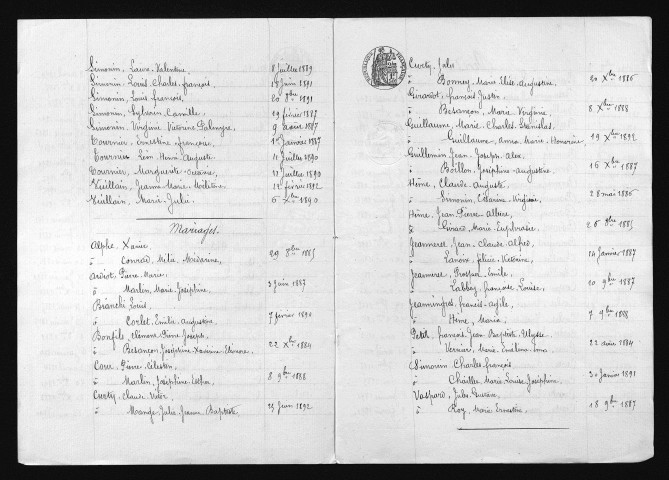 Simonin, Laure Valentine 8 Juillet 1889
Simonin, Louis Charles françois, Juin 1891
Simonin, Louis françois, 20 8bre 1891
Simonin, Sylvain Camille 29 février 1887
Simonin, Virginie Victorine Palmyre, 9 avril 1887
Tournier, Ernestine françoise, 1er Janvier 1887
Tournier, Léon Henri Auguste 11 Juillet 1890
Tournier, Marguerite 11 Juillet 1890
Vuillain, Jeanne Marie 12 février 1892
Vuillain, Marie Julie 6 Xbre 1890
Mariages.
Alphe, Xavier,
à Conrad, Médarine, 29 8bre 1885
Ardiot, Pierre Marie
à Martin, Marie Joséphine, 3 Juin 1887
Bianchi Louis,
à Corlet, Emilie Augustine 7 février 1891
Bonfils, Clément Pierre Joseph,
à Besançon, Joséphine Léonore 22 Xbre 1884
Cour Pierre Célestin
à Martin, Joséphine 8 9bre 1888
Curty, Claude Victor
à Monge, Julie Jeanne Baptiste 25 Juin 1892
Curty, Jules
à Bonney, Marie Elise Augustine 20 Xbre 1886
Girardot, françois Justin
à Besançon, Marie Virginie, 8 Xbre 1888
Guillaume, Marie Charles Stanislas,
à Guillaume, Anna Marie Honorine 19 Xbre 1892
Guillemin, Jean Joseph
à Boillon, Joséphine Augustine 16 Xbre 1887
Hême, Claude Auguste
à Simonin, Césarine Virginie 28 mai 1886
Hême, Jean Pierre
à Girard, Marie Euphrasie 26 9bre 1885
Jeanneret, Jean Claude Alfred,
Lanoix, félicie Victorine, 24 Janvier 1887
Jeanneret, Prosper Emile,
à Labbey, françoise Louise, 10 9bre 1887
Jeanningros, francis
à Hême, Maria, 7 9bre 1888
Petit, françois Jean Baptiste Ulysse
à Vernier, Marie 22 avril 1884
Simonin, Charles françois
à Chaillet, Marie Louise Joséphine 30 Janvier 1891
Vaspard, Jules Gustave
à Roy, Marie Ernestine, 18 9bre 1887